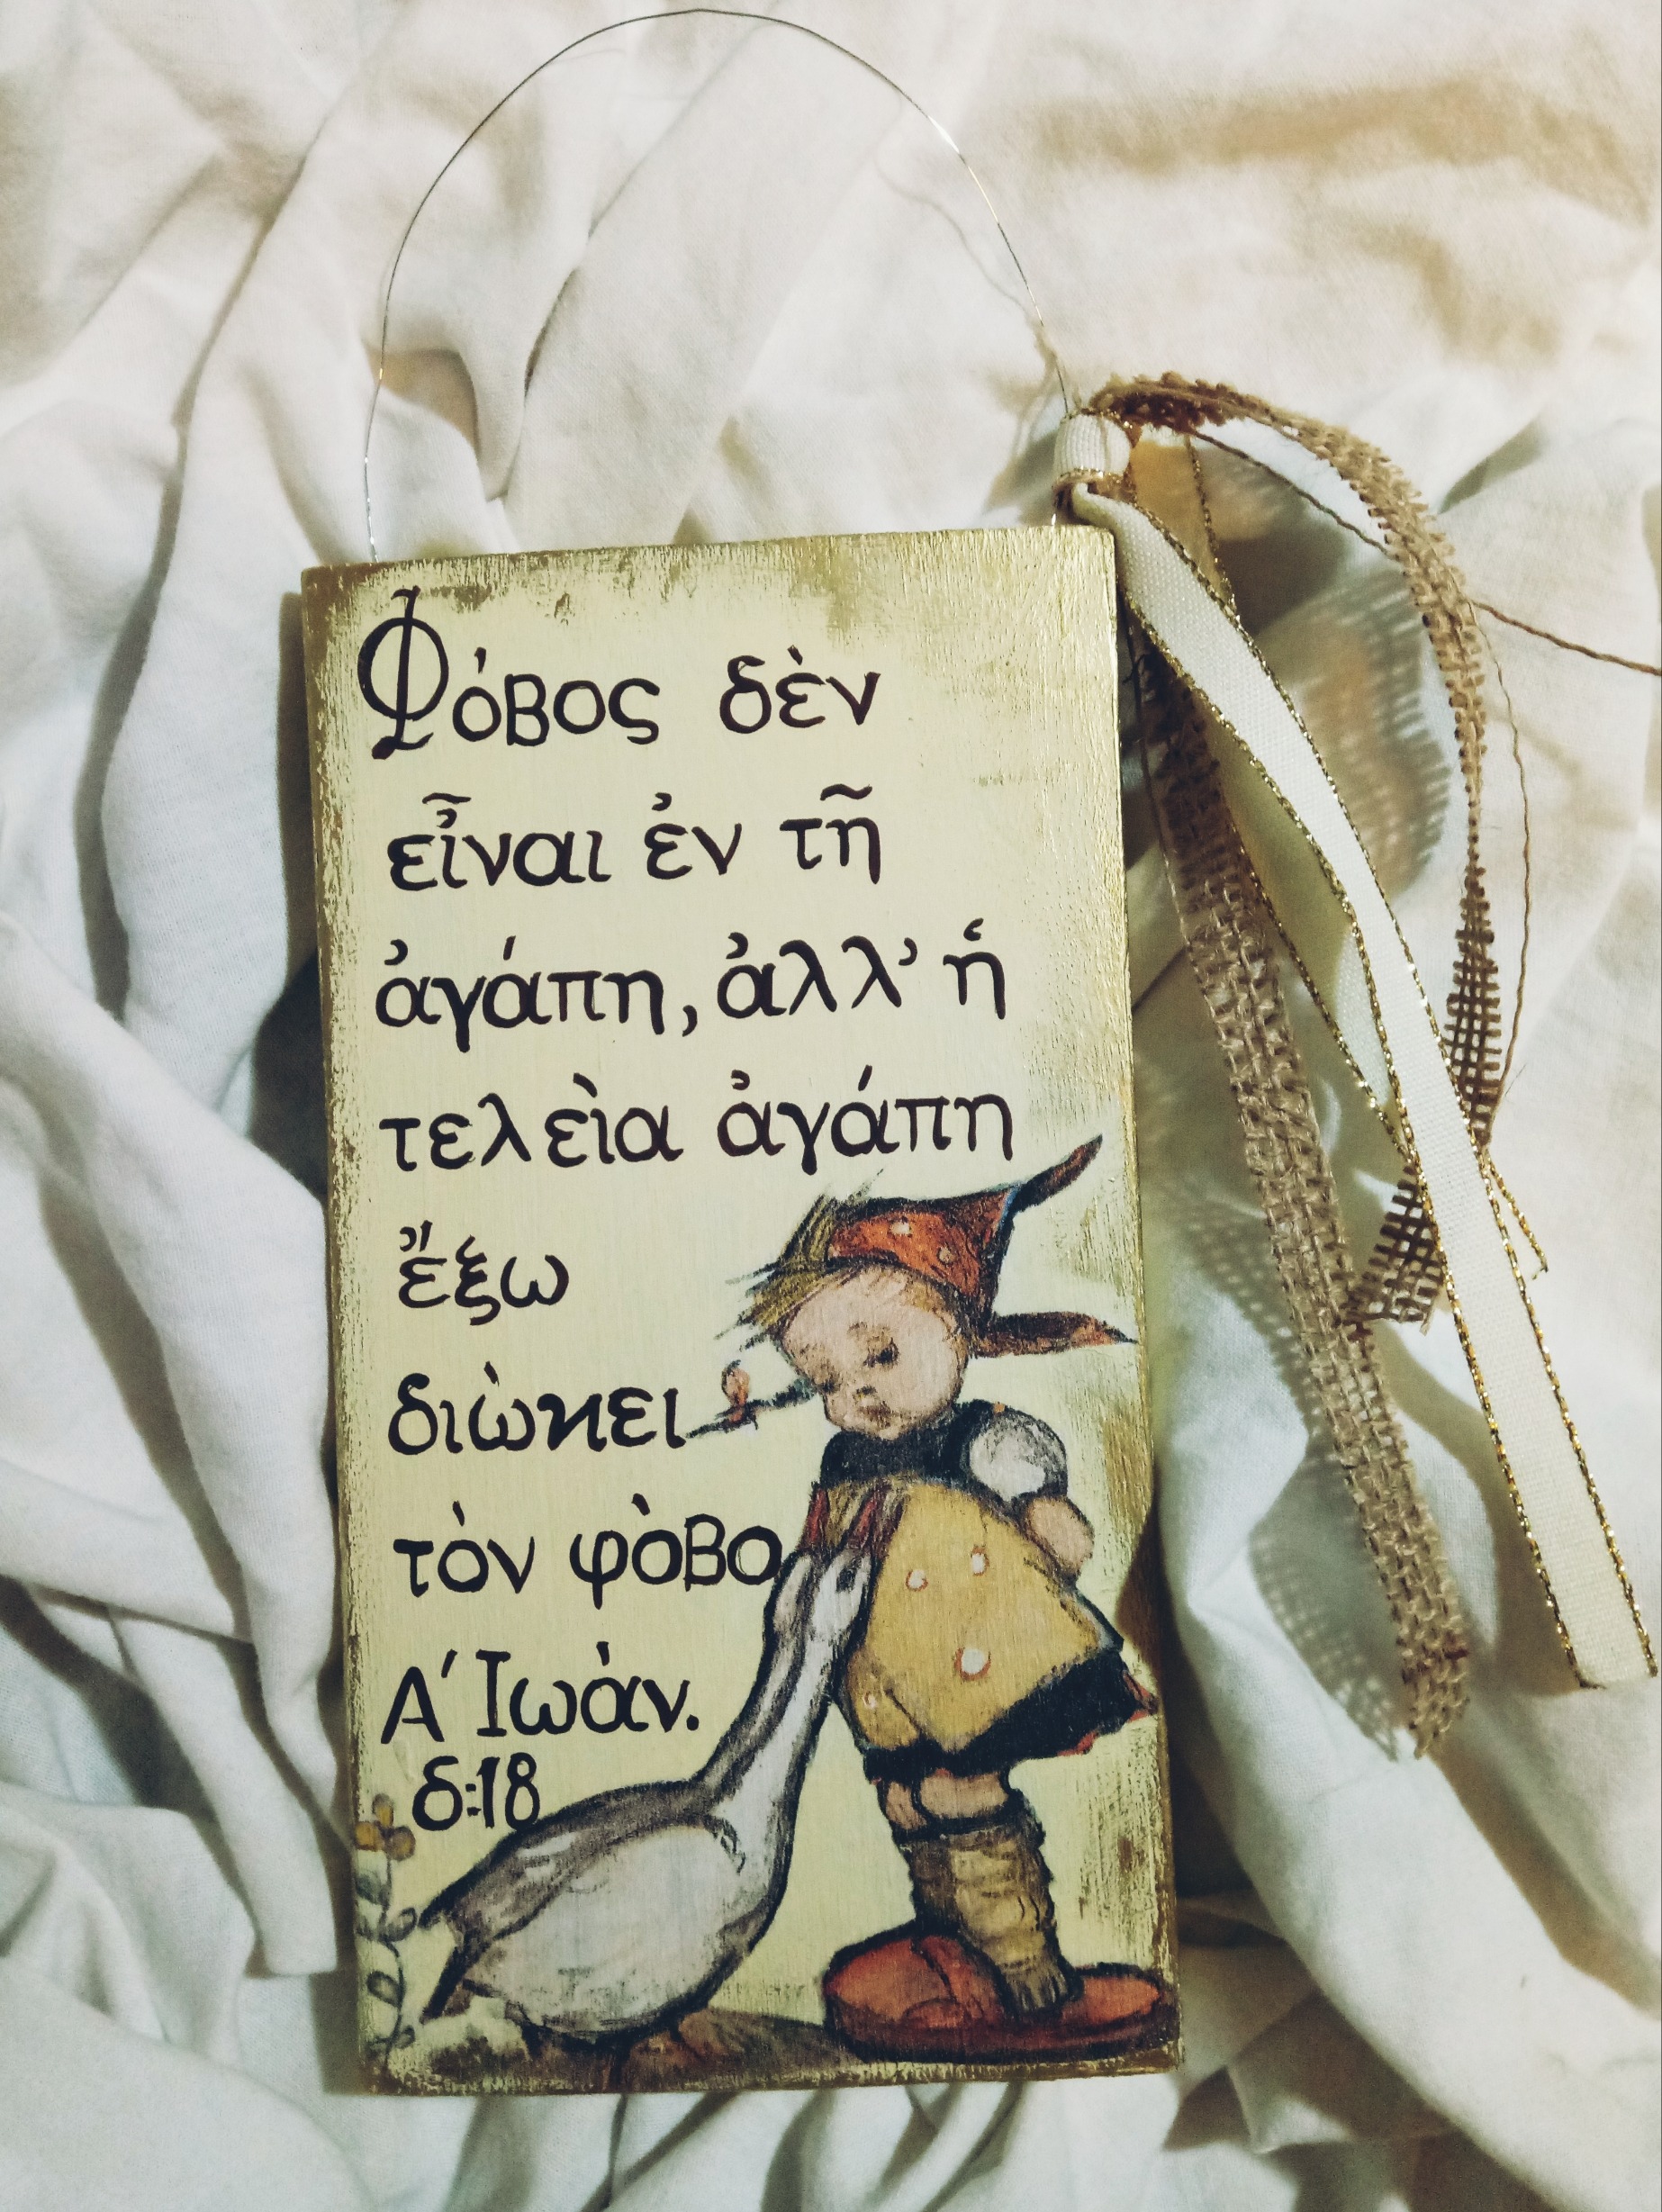 Φὸβος δὲν
εἶναι ἐν τῆ
ἀγάπη, ἀλλ’ ἡ
τελεὶα ἀγάπη
ἔξω
διὼκει
τὸν φὸβο
Α΄ Ἰωὰν.
δ:18